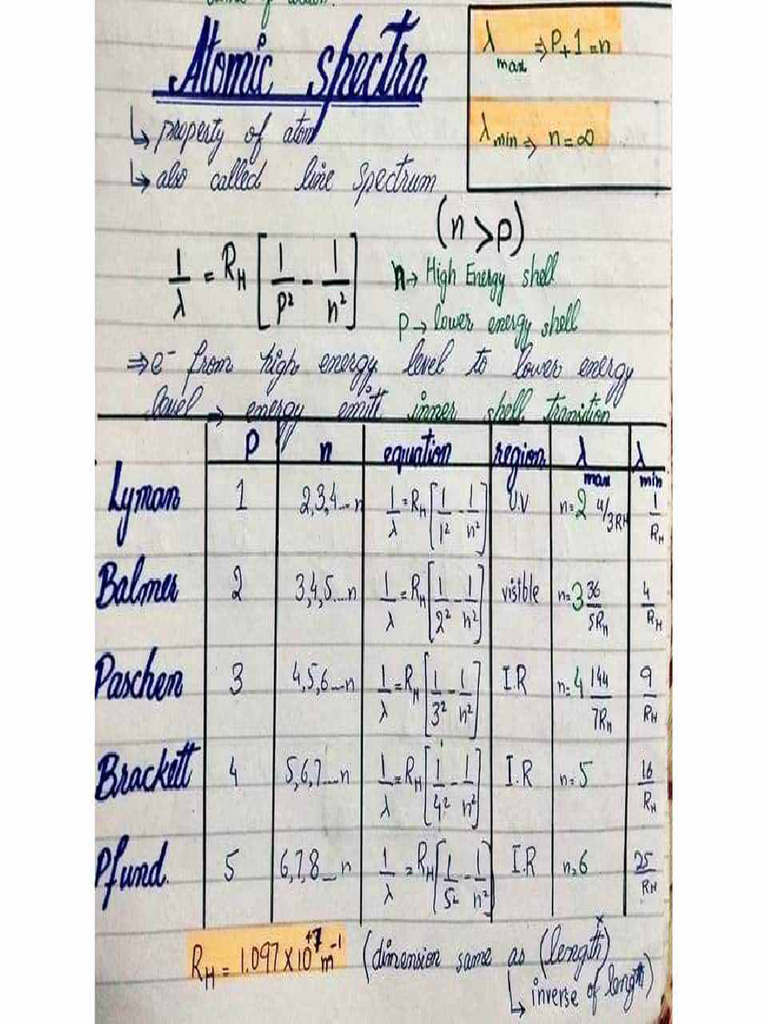 Atomic spectra
↳ property of atom
↳ also called line spectrum
λmax ⇒ P+1=n
λmin ⇒ n=∞
(n>p)
1/λ = RH [1/P² - 1/n²]
n → High Energy shell
P → lower energy shell
⇒ e⁻ from high energy level to lower energy
level → energy emitt inner shell transition
P n equation region λmax λmin
Lyman 1 2,3,4...n 1/λ = RH [1/1² - 1/n²] U.V n=2 4/3RH 1/RH
Balmer 2 3,4,5...n 1/λ = RH [1/2² - 1/n²] visible n=3 36/5RH 4/RH
Paschen 3 4,5,6...n 1/λ = RH [1/3² - 1/n²] I.R n=4 144/7RH 9/RH
Brackett 4 5,6,7...n 1/λ = RH [1/4² - 1/n²] I.R n=5 16/RH
Pfund. 5 6,7,8...n 1/λ = RH [1/5² - 1/n²] I.R n=6 25/RH
RH = 1.097×10⁺⁷ m⁻¹ (dimension same as (length)
↳ inverse of length)